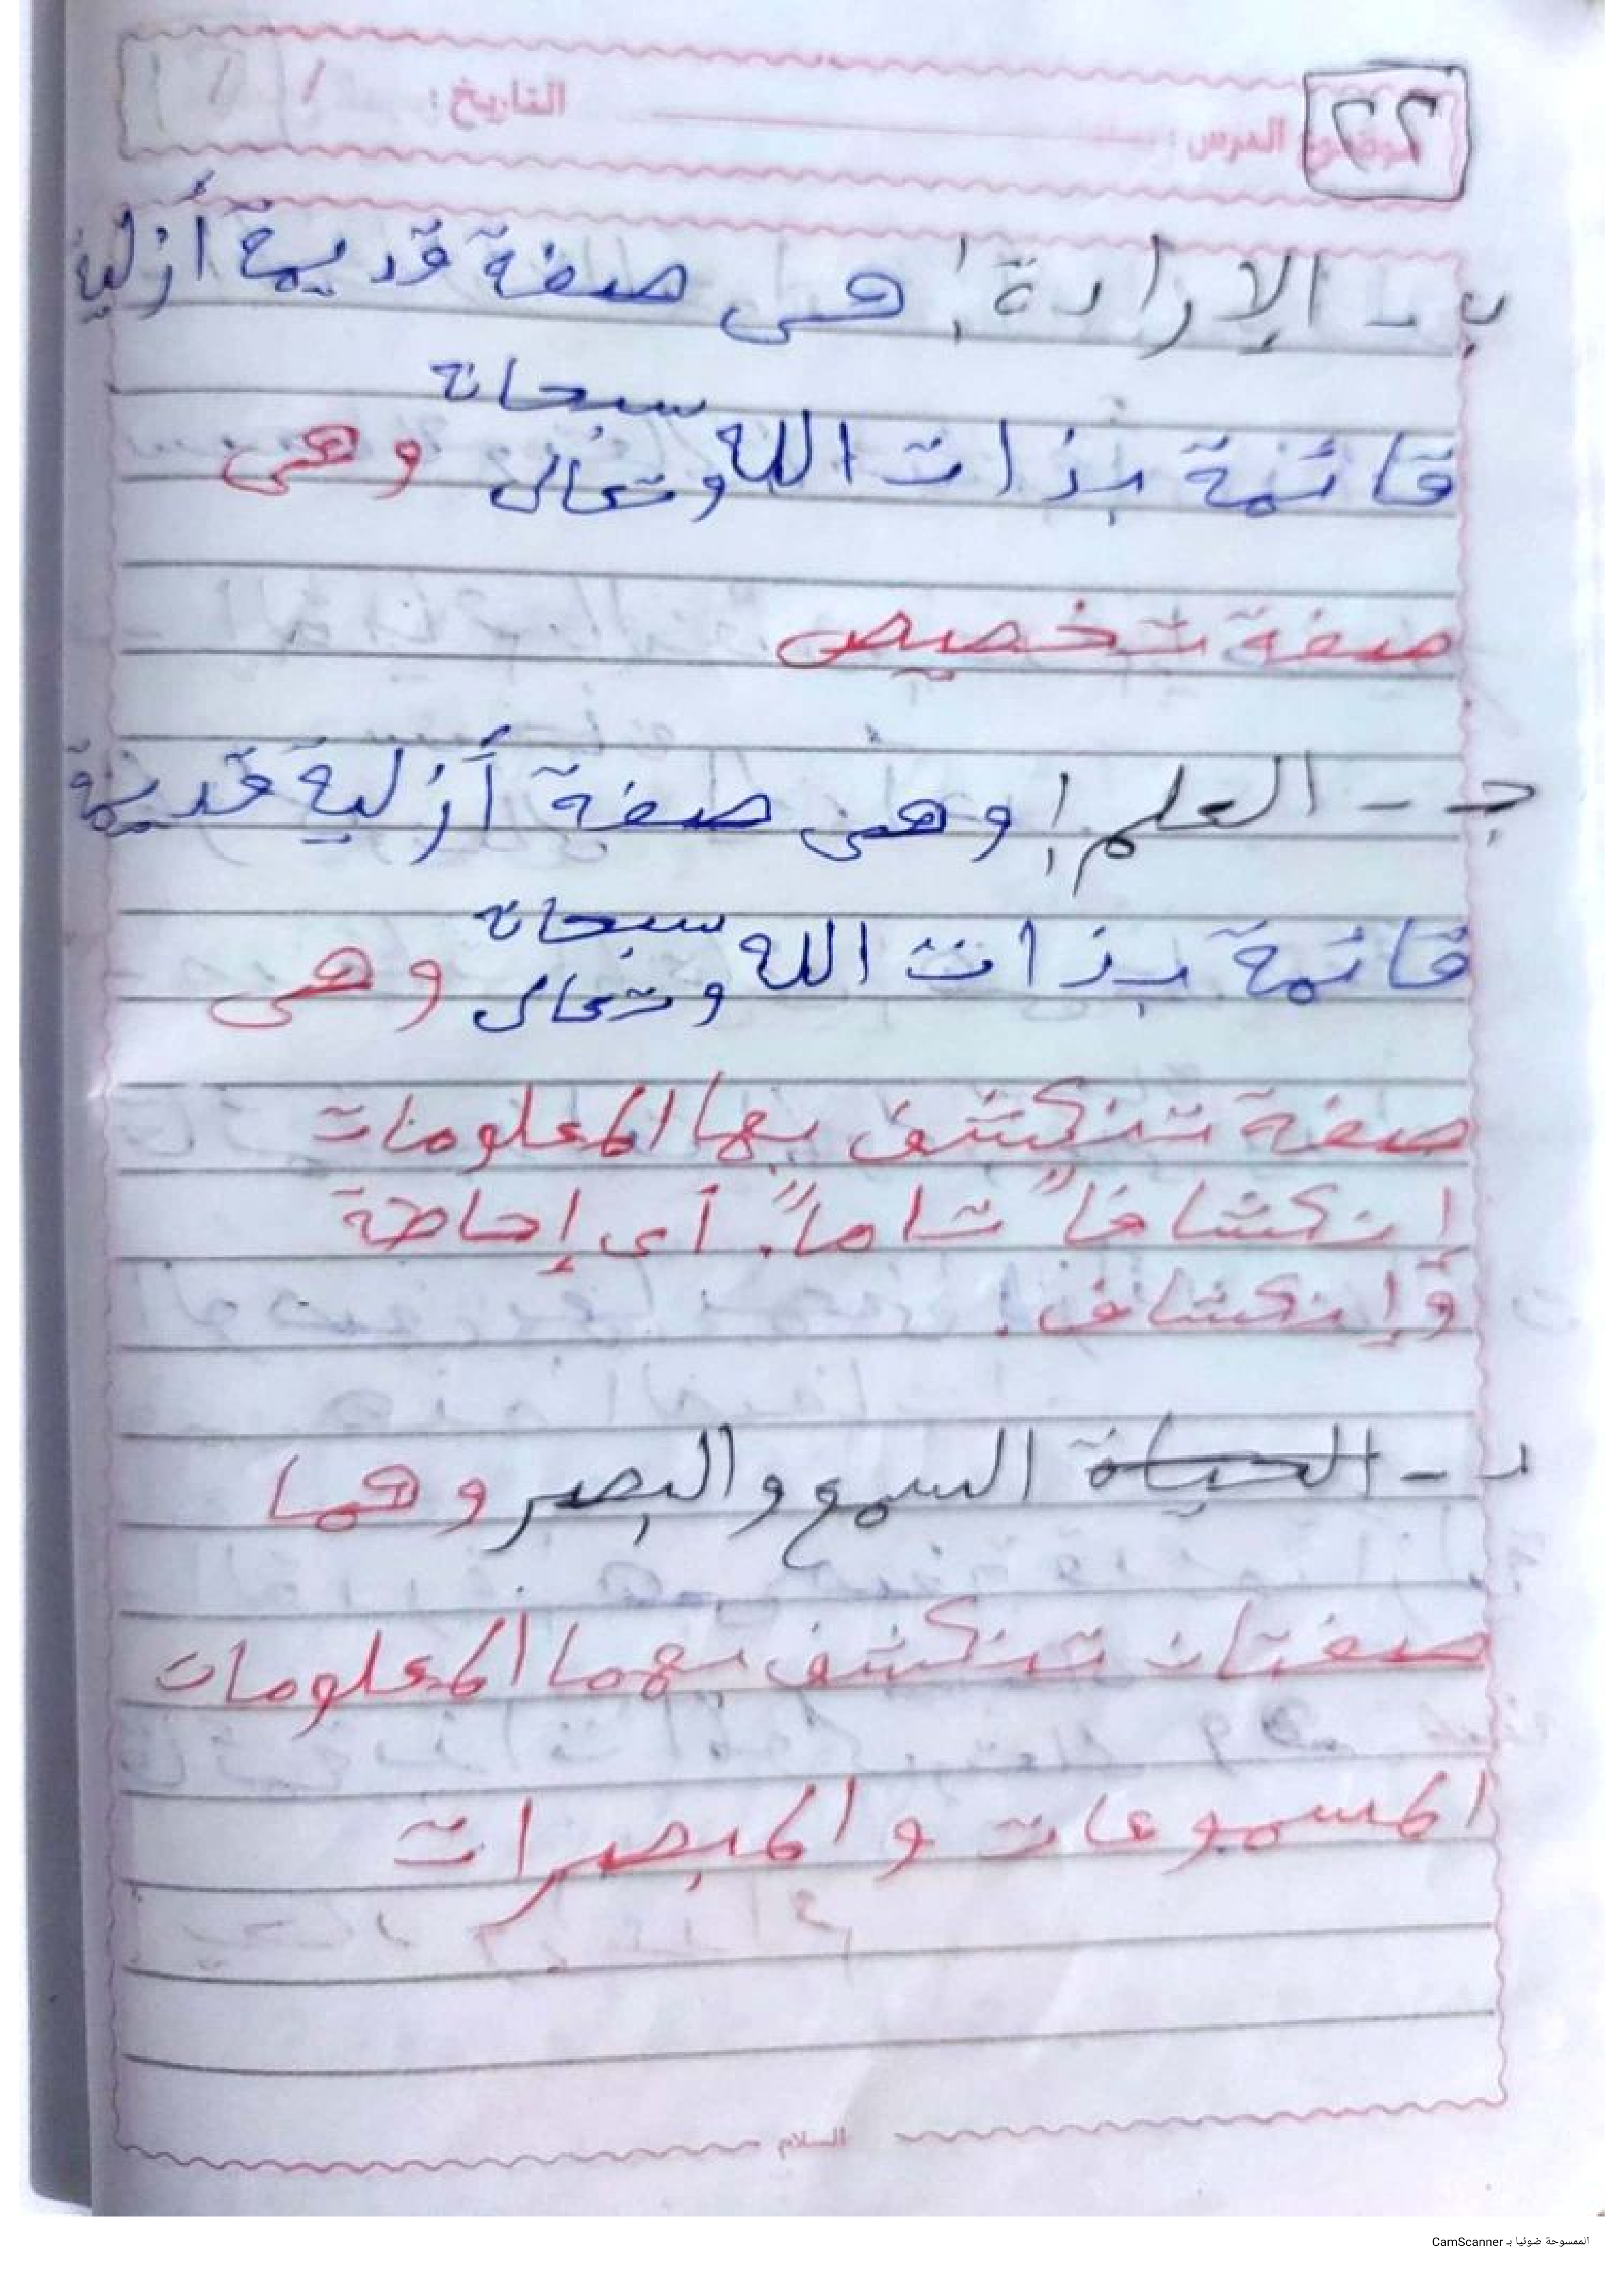 ٢٢
موضوع الدرس : التاريخ : / /
ب - الإرادة: هى صفة قديمة أزلية
قائمة بذات الله سبحانه وتعالى وهى
صفة تخصيص
جـ - العلم: وهى صفة أزلية قديمة
قائمة بذات الله سبحانه وتعالى وهى
صفة تنكشف بها المعلومات
إنكشافاً تاماً. أى إحاطة
وإنكشاف.
د - الحياة السمع والبصر وهما
صفتان تنكشف بهما المعلومات
المسموعات والمبصرات
السلام
الممسوحة ضوئيا بـ CamScanner